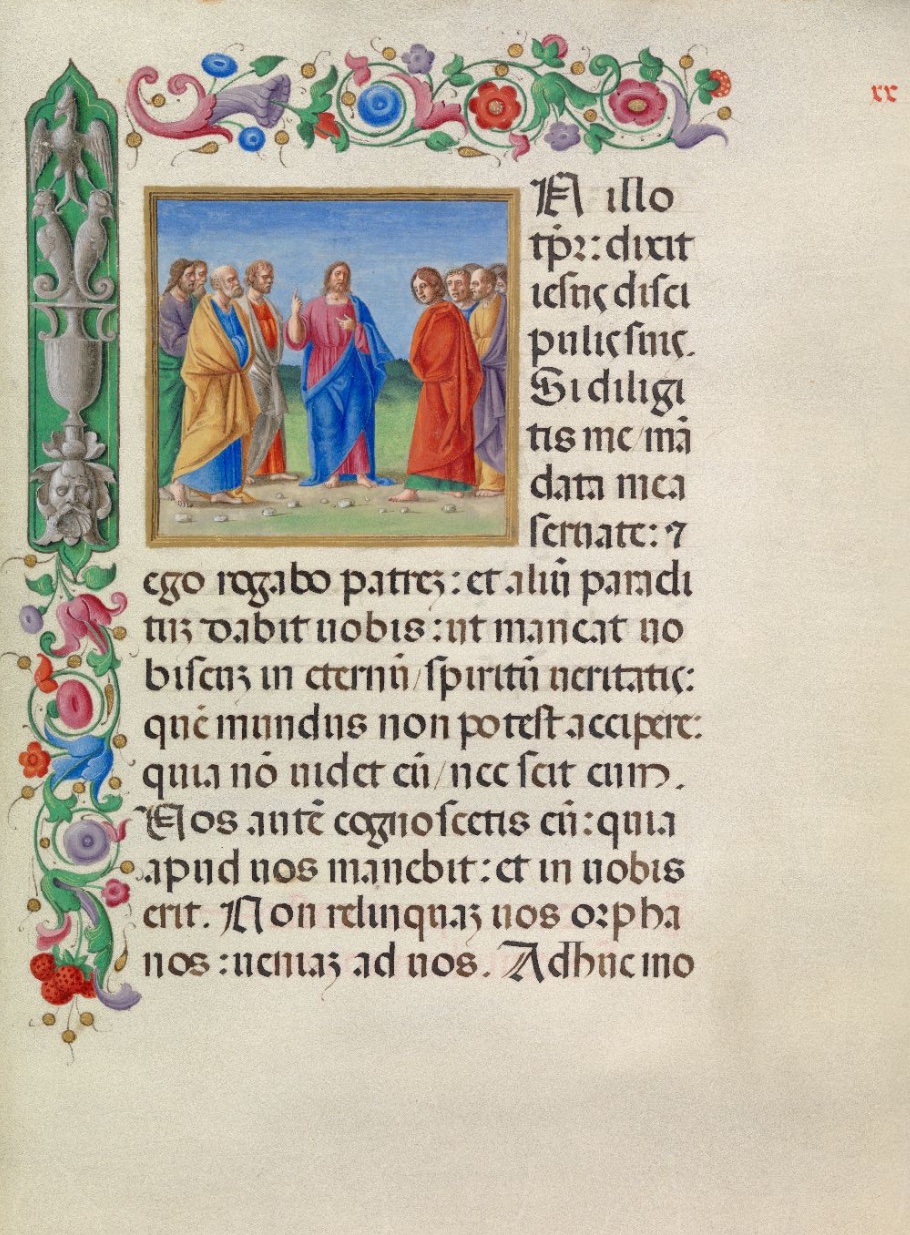 xx
IN illo
tpr̃: dixit
iesus disci
pulis suis.
Si diligi
tis me / mā
data mea
seruate: ⁊
ego rogabo patrez: et aliū paracli
tuz dabit uobis: ut maneat uo
biscuz in eternū / spiritū ueritatis:
quē mundus non potest accipere:
quia nō uidet eū / nec scit eum.
Uos autē cognoscetis eū: quia
apud uos manebit: et in uobis
erit. Non relinquaz uos orpha
nos: ueniaz ad uos. Adhuc mo